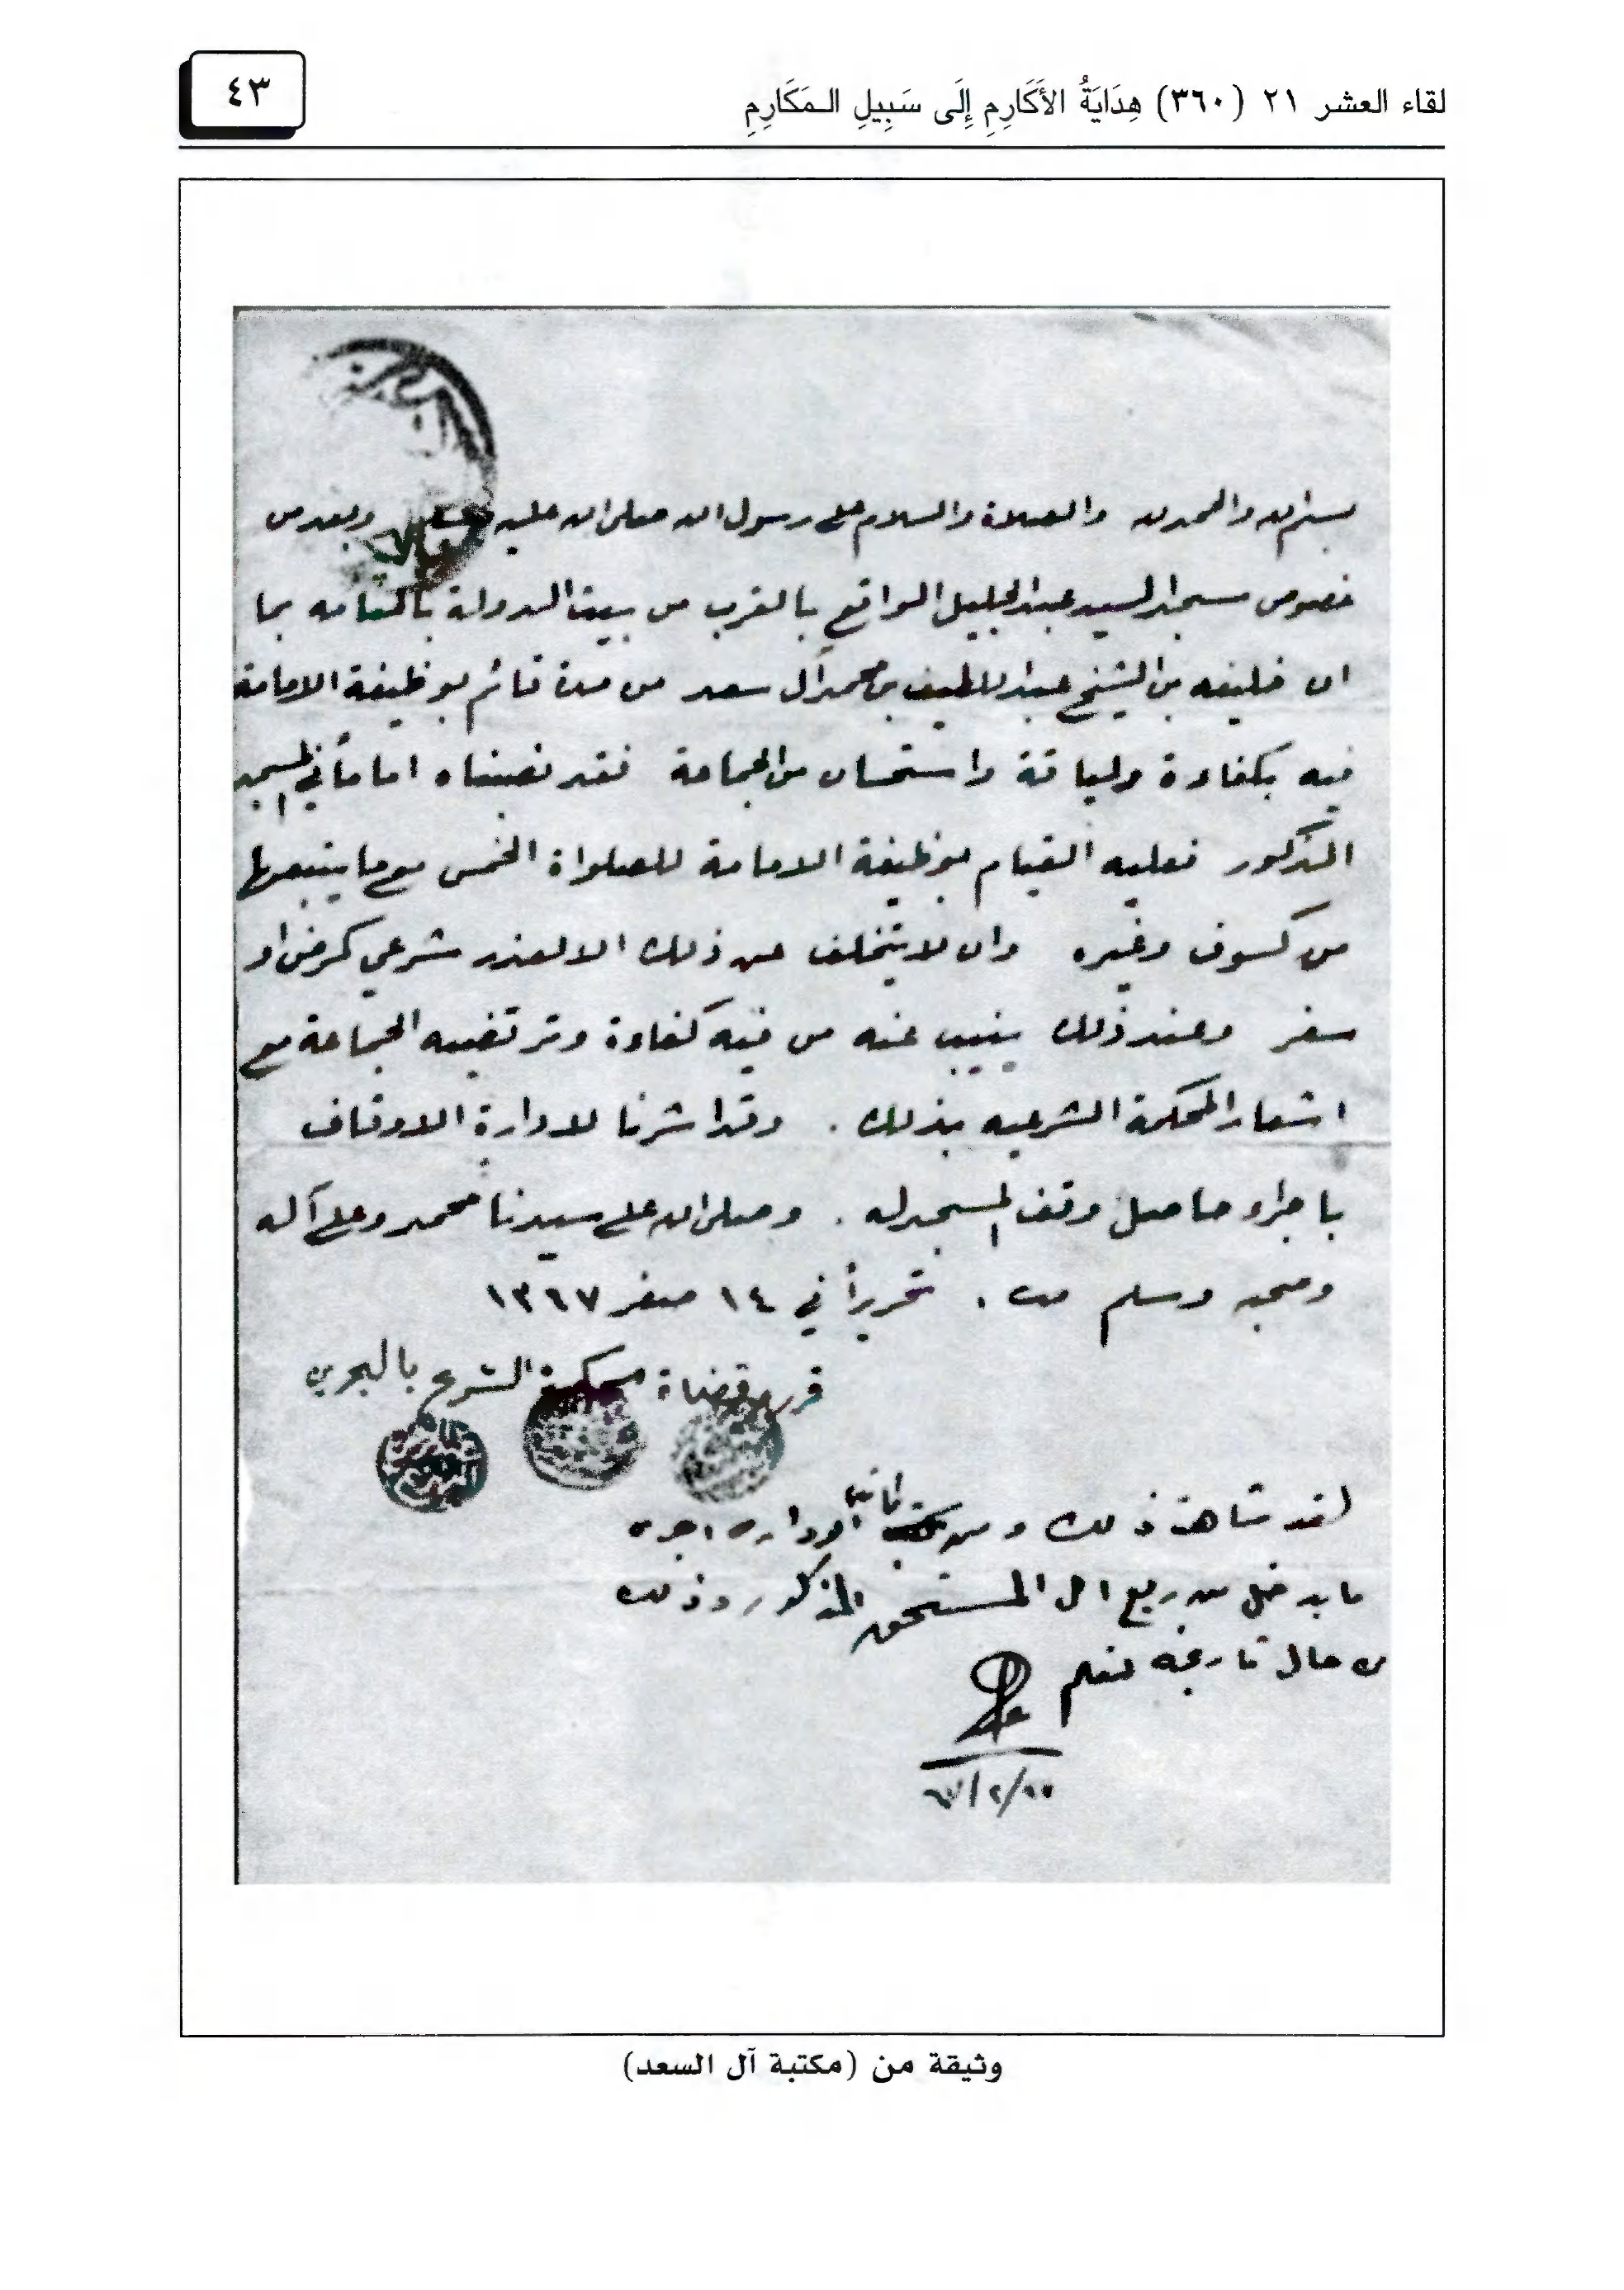 لقاء العشر ٢١ (٣٦٠) هِدَايَةُ الأَكَارِمِ إِلَى سَبِيلِ الـمَكَارِمِ
٤٣
بسم الله والحمد لله والصلاة والسلام على رسول الله صلى الله عليه وسلم وبعد من
خصوص مسجد السيد عبدالجليل الواقع بالقرب من بيت الدولة بالمنامه بما
ان خليفه بن الشيخ عبداللطيف بن محمد آل سعد من مدة قائم بوظيفة الامامة
فيه بكفاءة ولياقة واستحسان من الجماعة فقد نصبناه اماماً في المسجد
المذكور فعليه القيام بوظيفة الامامة للصلواة الخمس مع ما يتبعها
من كسوف وغيره وان لا يتخلف عن ذلك الا لعذر شرعي كمرض او
سفر وعند ذلك ينيب عنه من فيه كفاءة وترتضيه الجماعة مع
اشعار المحكمة الشرعيه بذلك . وقد اشرنا لادارة الاوقاف
باجراء حاصل وقف المسجد له . وصلى الله على سيدنا محمد وعلى آله
وصحبه وسلم . تحريراً في ١٤ صفر ١٣٦٧
قضاة محكمة الشرع بالبحرين
لقد شاهدت ذلك ومن الادارة اجرى
ما يدخل من ريع الى المستحق المذكور وذلك
من حال تاريخه ليعلم
وثيقة من (مكتبة آل السعد)